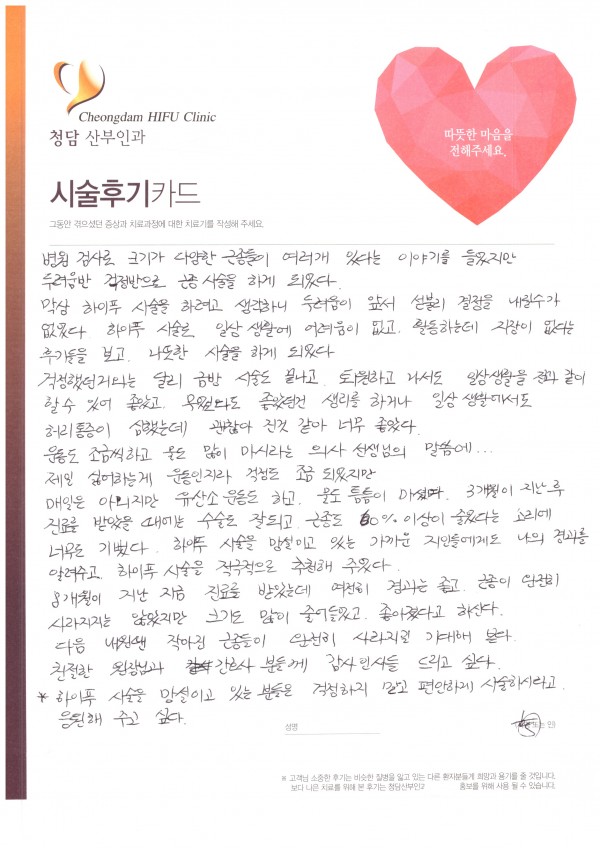 Cheongdam HIFU Clinic
청담 산부인과
따뜻한 마음을
전해주세요.
시술후기카드
그동안 겪으셨던 증상과 치료과정에 대한 치료기를 작성해 주세요.
병원 검사로 크기가 다양한 근종들이 여러개 있다는 이야기를 들었지만
두려움반 걱정반으로 근종 시술을 하게 되었다.
막상 하이푸 시술을 하려고 생각하니 두려움이 앞서 선불리 결정을 내릴수가
없었다 하이푸 시술로 일상 생활에 어려움이 없고. 활동하는데 지장이 없다는
후기들을 보고. 나또한 시술을 하게 되었다
걱정했던거와는 달리 금방 시술도 끝나고. 퇴원하고 나서도 일상생활을 전과 같이
할 수 있어 좋았고. 무엇보다도 좋았던건 생리를 하거나 일상 생활에서도
허리통증이 심했는데 괜찮아 진것 같아 너무 좋았다.
운동도 조금씩하고 물도 많이 마시라는 의사 선생님의 말씀에...
제일 싫어하는게 운동인지라 걱정도 조금 되었지만
매일은 아니지만 유산소 운동도 하고. 물도 틈틈이 마셨다. 3개월이 지난후
진료를 받았을 때에는 수술도 잘되고. 근종도 60% 이상이 줄었다는 소리에
너무도 기뻤다. 하이푸 시술을 망설이고 있는 가까운 지인들에게도 나의 경과를
알려주고. 하이푸 시술을 적극적으로 추천해 주었다.
8개월이 지난 지금 진료를 받았는데 여전히 경과는 좋고. 근종이 완전히
사라지지는 않았지만 크기도 많이 줄어들었고. 좋아졌다고 하신다.
다음 내원땐 작아진 근종들이 완전히 사라지길 기대해 본다.
친절한 원장님과 간호사 분들께 감사 인사를 드리고 싶다.
* 하이푸 시술을 망설이고 있는 분들은 걱정하지 말고 편안하게 시술하시라고.
응원해 주고 싶다.
성명 또는 인)
※ 고객님 소중한 후기는 비슷한 질병을 앓고 있는 다른 환자분들게 희망과 용기를 줄 것입니다.
보다 나은 치료를 위해 본 후기는 청담산부인과 홍보를 위해 사용 될 수 있습니다.